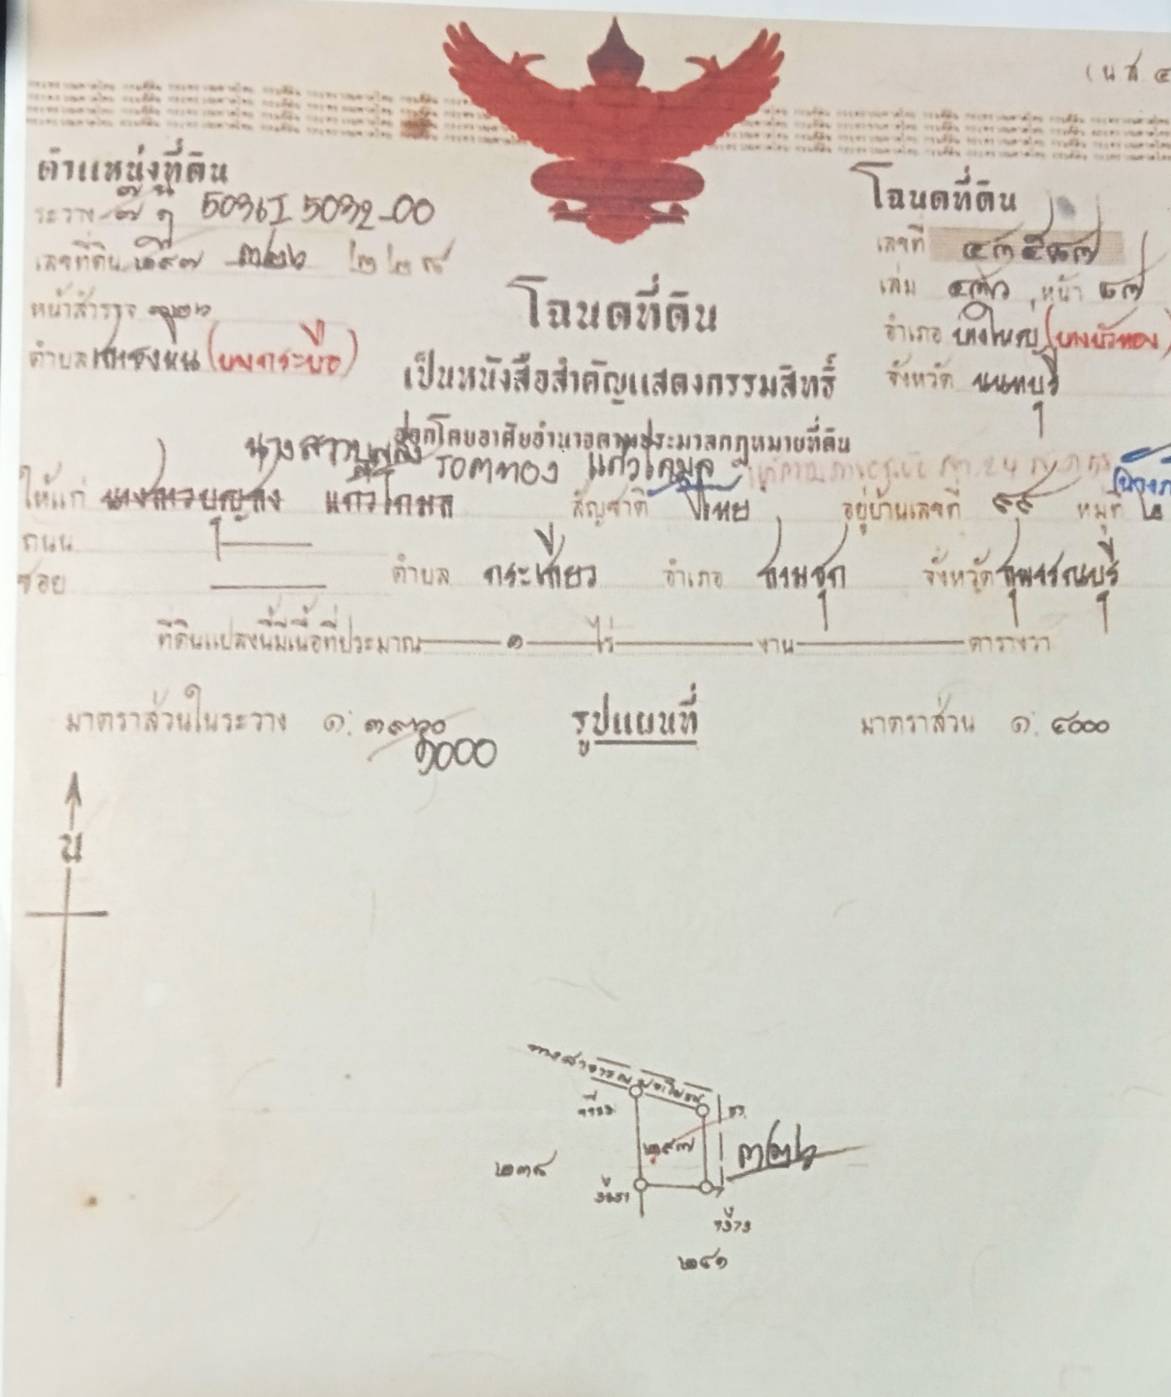 (น.ส. ๔
ตำแหน่งที่ดิน
โฉนดที่ดิน
ระวาง 5036I 5032-00
เลขที่ดิน ๒๙๗ ๓๒๖
เลขที่ ๔๓๕๘๗
หน้าสำรวจ
เล่ม หน้า ๘๗
โฉนดที่ดิน
ตำบล (บางกระบือ)
อำเภอ บางใหญ่ (บางบัวทอง)
เป็นหนังสือสำคัญแสดงกรรมสิทธิ์
จังหวัด นนทบุรี
ออกโดยอาศัยอำนาจตามประมวลกฎหมายที่ดิน
นางสาวบุญส่ง แก้วโกมล
ให้แก่ นางสาวบุญส่ง แก้วโกมล สัญชาติ ไทย อยู่บ้านเลขที่ ๙๙ หมู่ที่ ๒
ถนน
ซอย ตำบล กระเสียว อำเภอ สามชุก จังหวัด สุพรรณบุรี
ที่ดินแปลงนี้มีเนื้อที่ประมาณ ๑ ไร่ งาน ตารางวา
มาตราส่วนในระวาง ๑: ๓๙๖๐
รูปแผนที่
มาตราส่วน ๑: ๔๐๐๐
๑๐๐๐
น
ทางสาธารณประโยชน์
๒๙๗
๓๒๖
๒๓๘
๒๔๑